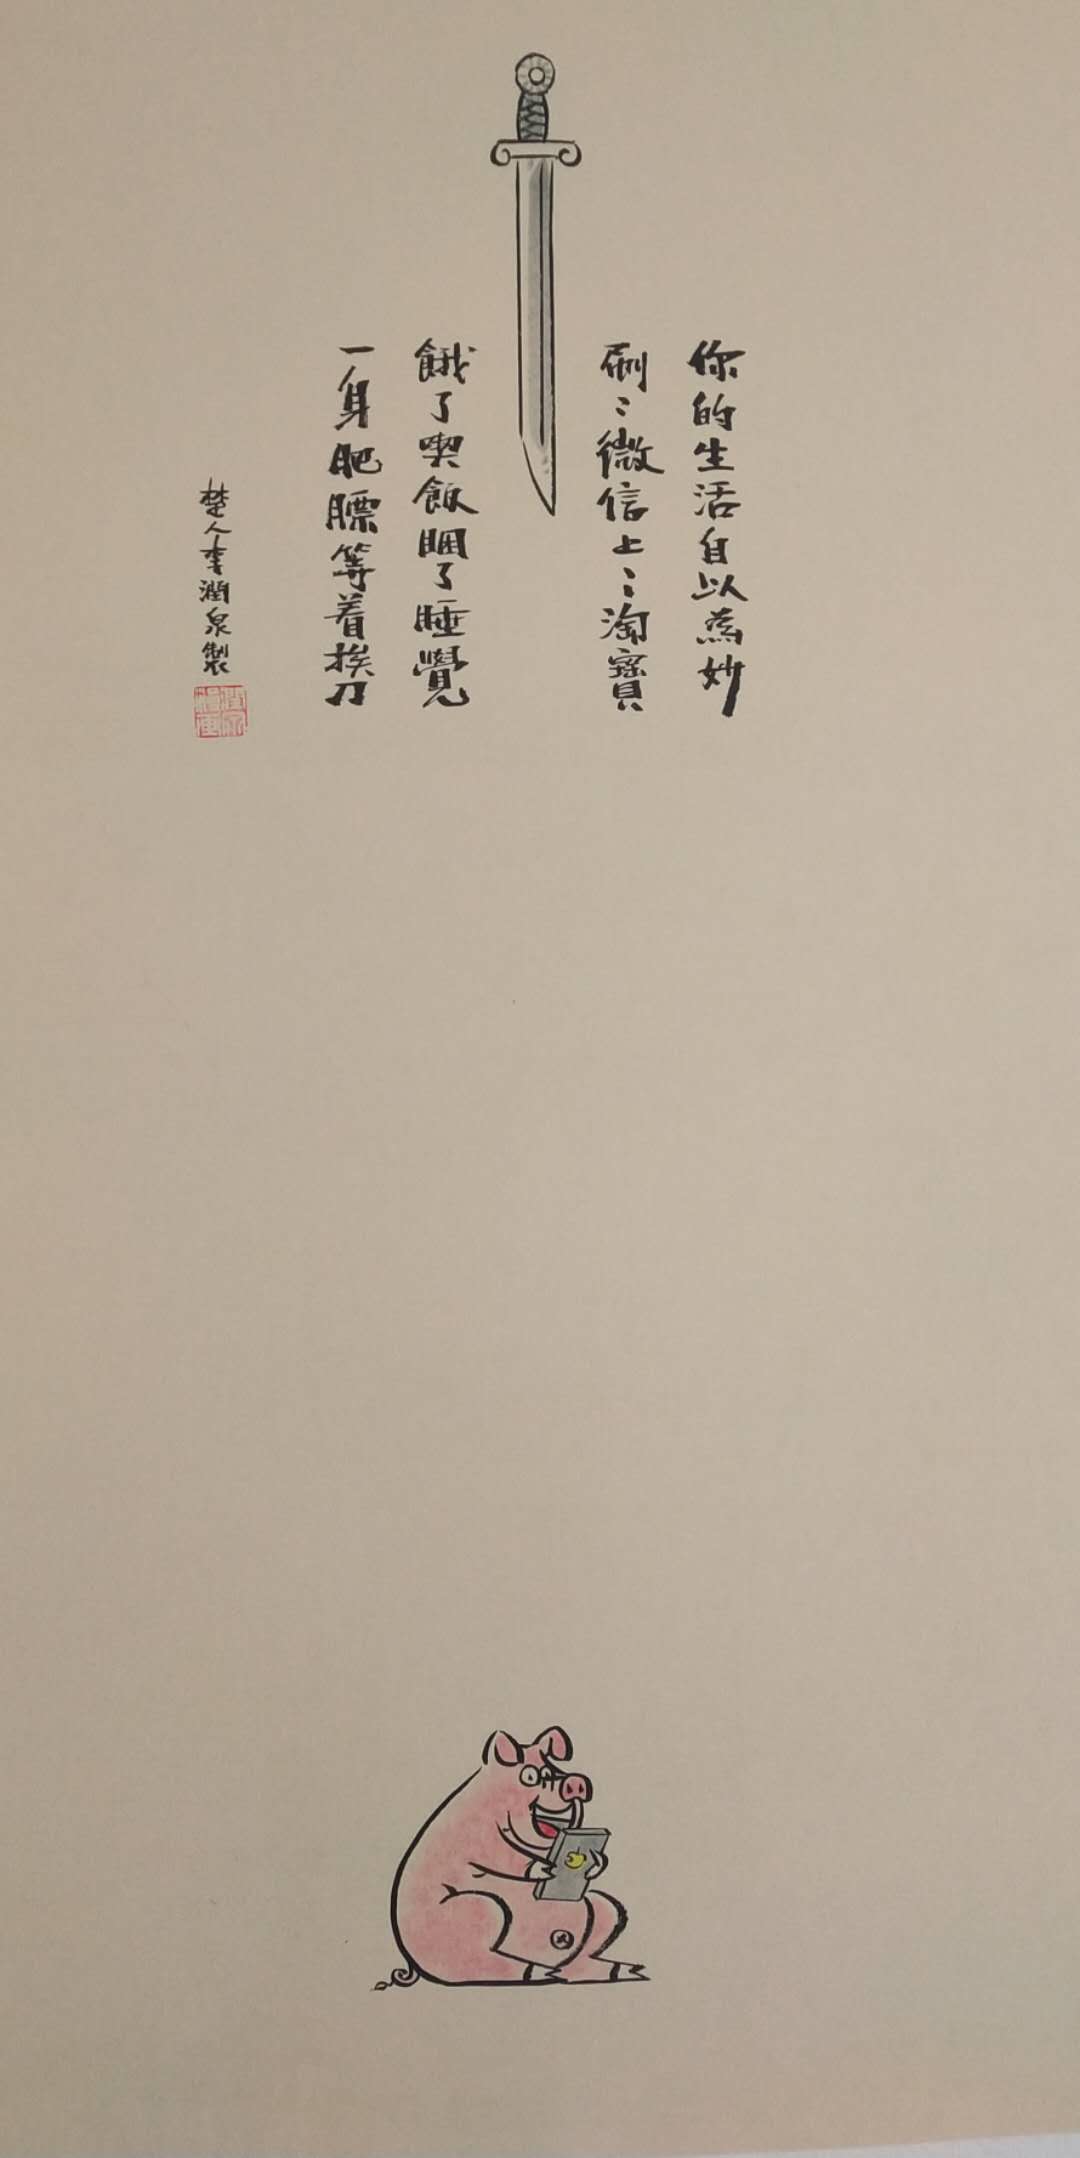 你的生活自以為妙
刷〻微信上〻淘寶
餓了喫飯睏了睡覺
一身肥膘等着挨刀
楚人李潤泉製